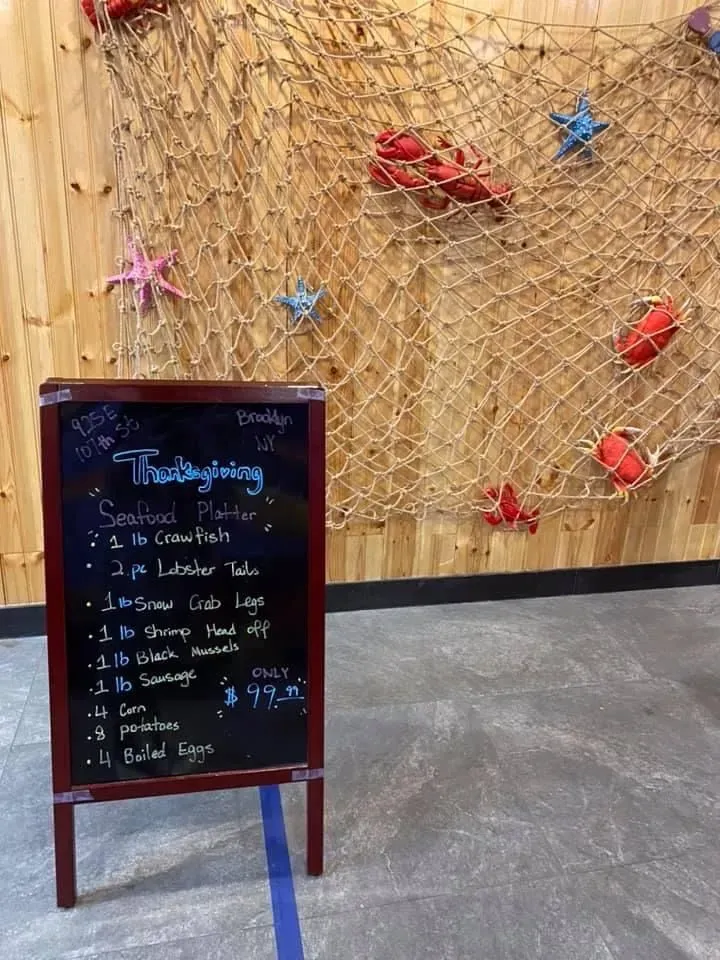 925 E
107th St
Brooklyn
NY
Thanksgiving
Seafood Platter
• 1 lb Crawfish
• 2.pc Lobster Tails
• 1 lb Snow Crab Legs
• 1 lb Shrimp Head off
• 1 lb Black Mussels
• 1 lb Sausage
• 4 Corn
• 8 potatoes
• 4 Boiled Eggs
ONLY
$ 99.99